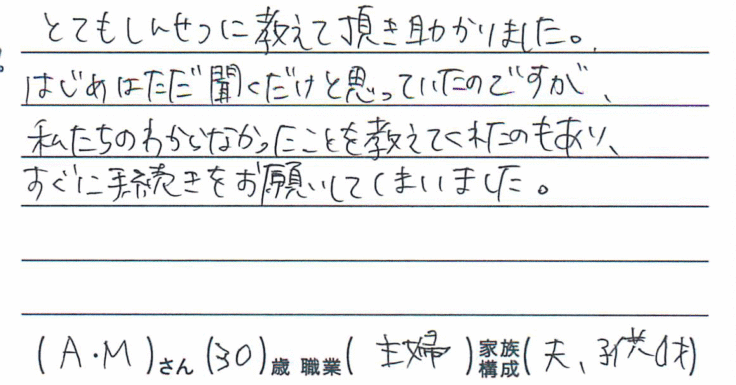 とてもしんせつに教えて頂き助かりました。
はじめはただ聞くだけと思っていたのですが、
私たちのわからなかったことを教えてくれたのもあり、
すぐに手続きをお願いしてしまいました。
(A・M)さん(30)歳 職業(主婦)家族構成(夫、